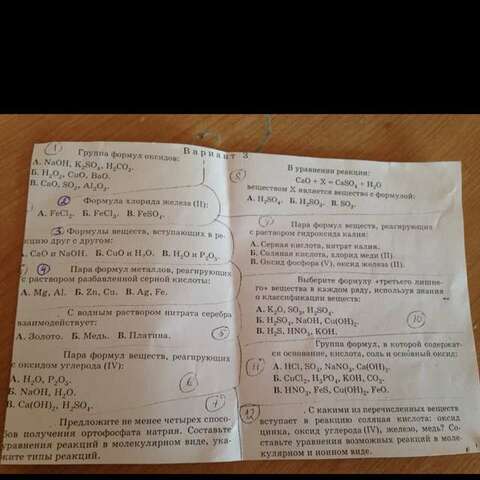 Вариант 3
1
Группа формул оксидов:
А. NaOH, K₂SO₄, H₂CO₃.
Б. H₂O₂, CuO, BaO.
В. CaO, SO₂, Al₂O₃.
2 Формула хлорида железа (II):
А. FeCl₂. Б. FeCl₃. В. FeSO₄.
3. Формулы веществ, вступающих в ре-
кцию друг с другом:
. CaO и NaOH. Б. CuO и H₂O. В. H₂O и P₂O₅.
4 Пара формул металлов, реагирующих
с раствором разбавленной серной кислоты:
А. Mg, Al. Б. Zn, Cu. В. Ag, Fe.
. С водным раствором нитрата серебра
взаимодействует:
А. Золото. Б. Медь. В. Платина. 5
Пара формул веществ, реагирующих
с оксидом углерода (IV):
А. H₂O, P₂O₅.
Б. NaOH, H₂O. 6
В. Ca(OH)₂, H₂SO₄.
7
Предложите не менее четырех спосо-
бов получения ортофосфата натрия. Составьте
уравнения реакций в молекулярном виде, ука-
жите типы реакций.
8 В уравнении реакции:
CaO + X = CaSO₄ + H₂O
веществом X является вещество с формулой:
А. H₂SO₄. Б. H₂SO₃. В. SO₃.
9 Пара формул веществ, реагирующих
с раствором гидроксида калия:
А. Серная кислота, нитрат калия.
Б. Соляная кислота, хлорид меди (II).
В. Оксид фосфора (V), оксид железа (II).
Выберите формулу «третьего лишне-
го» вещества в каждом ряду, используя знания
о классификации веществ:
А. K₂O, SO₃, H₂SO₄.
Б. H₂SO₄, NaOH, Cu(OH)₂. 10
В. H₂S, HNO₃, KOH.
Группа формул, в которой содержат-
ся основание, кислота, соль и основный оксид:
11 А. HCl, SO₂, NaNO₃, Ca(OH)₂.
Б. CuCl₂, H₃PO₄, KOH, CO₂.
В. HNO₃, FeS, Cu(OH)₂, FeO.
12 . С какими из перечисленных веществ
вступает в реакцию соляная кислота: оксид
цинка, оксид углерода (IV), железо, медь? Со-
ставьте уравнения возможных реакций в моле-
кулярном и ионном виде.